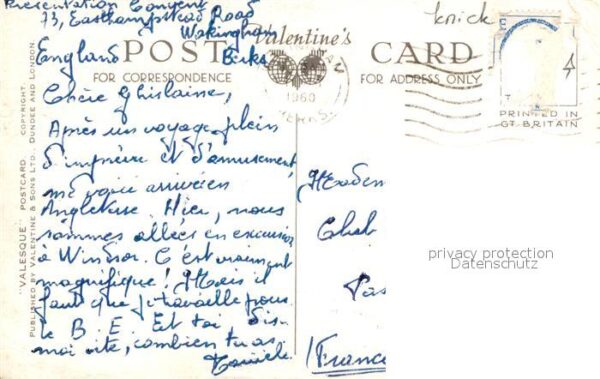 Presentation Convent
73, Easthampstead Road
Wokingham
England Berks
POST CARD
Valentine's
FOR CORRESPONDENCE
FOR ADDRESS ONLY
1960
knick
PRINTED IN
GT. BRITAIN
"VALESQUE" POSTCARD. COPYRIGHT.
PUBLISHED BY VALENTINE & SONS LTD., DUNDEE AND LONDON.
Chère Ghislaine,
Après un voyage plein
d'imprévu et d'amusement,
me voici arrivée en
Angleterre. Hier, nous
sommes allées en excursion
à Windsor. C'est vraiment
magnifique! Mais il
faut que je travaille pour
le B.E. Et toi dis-
moi vite, combien tu as
Chat
(France
privacy protection
Datenschutz